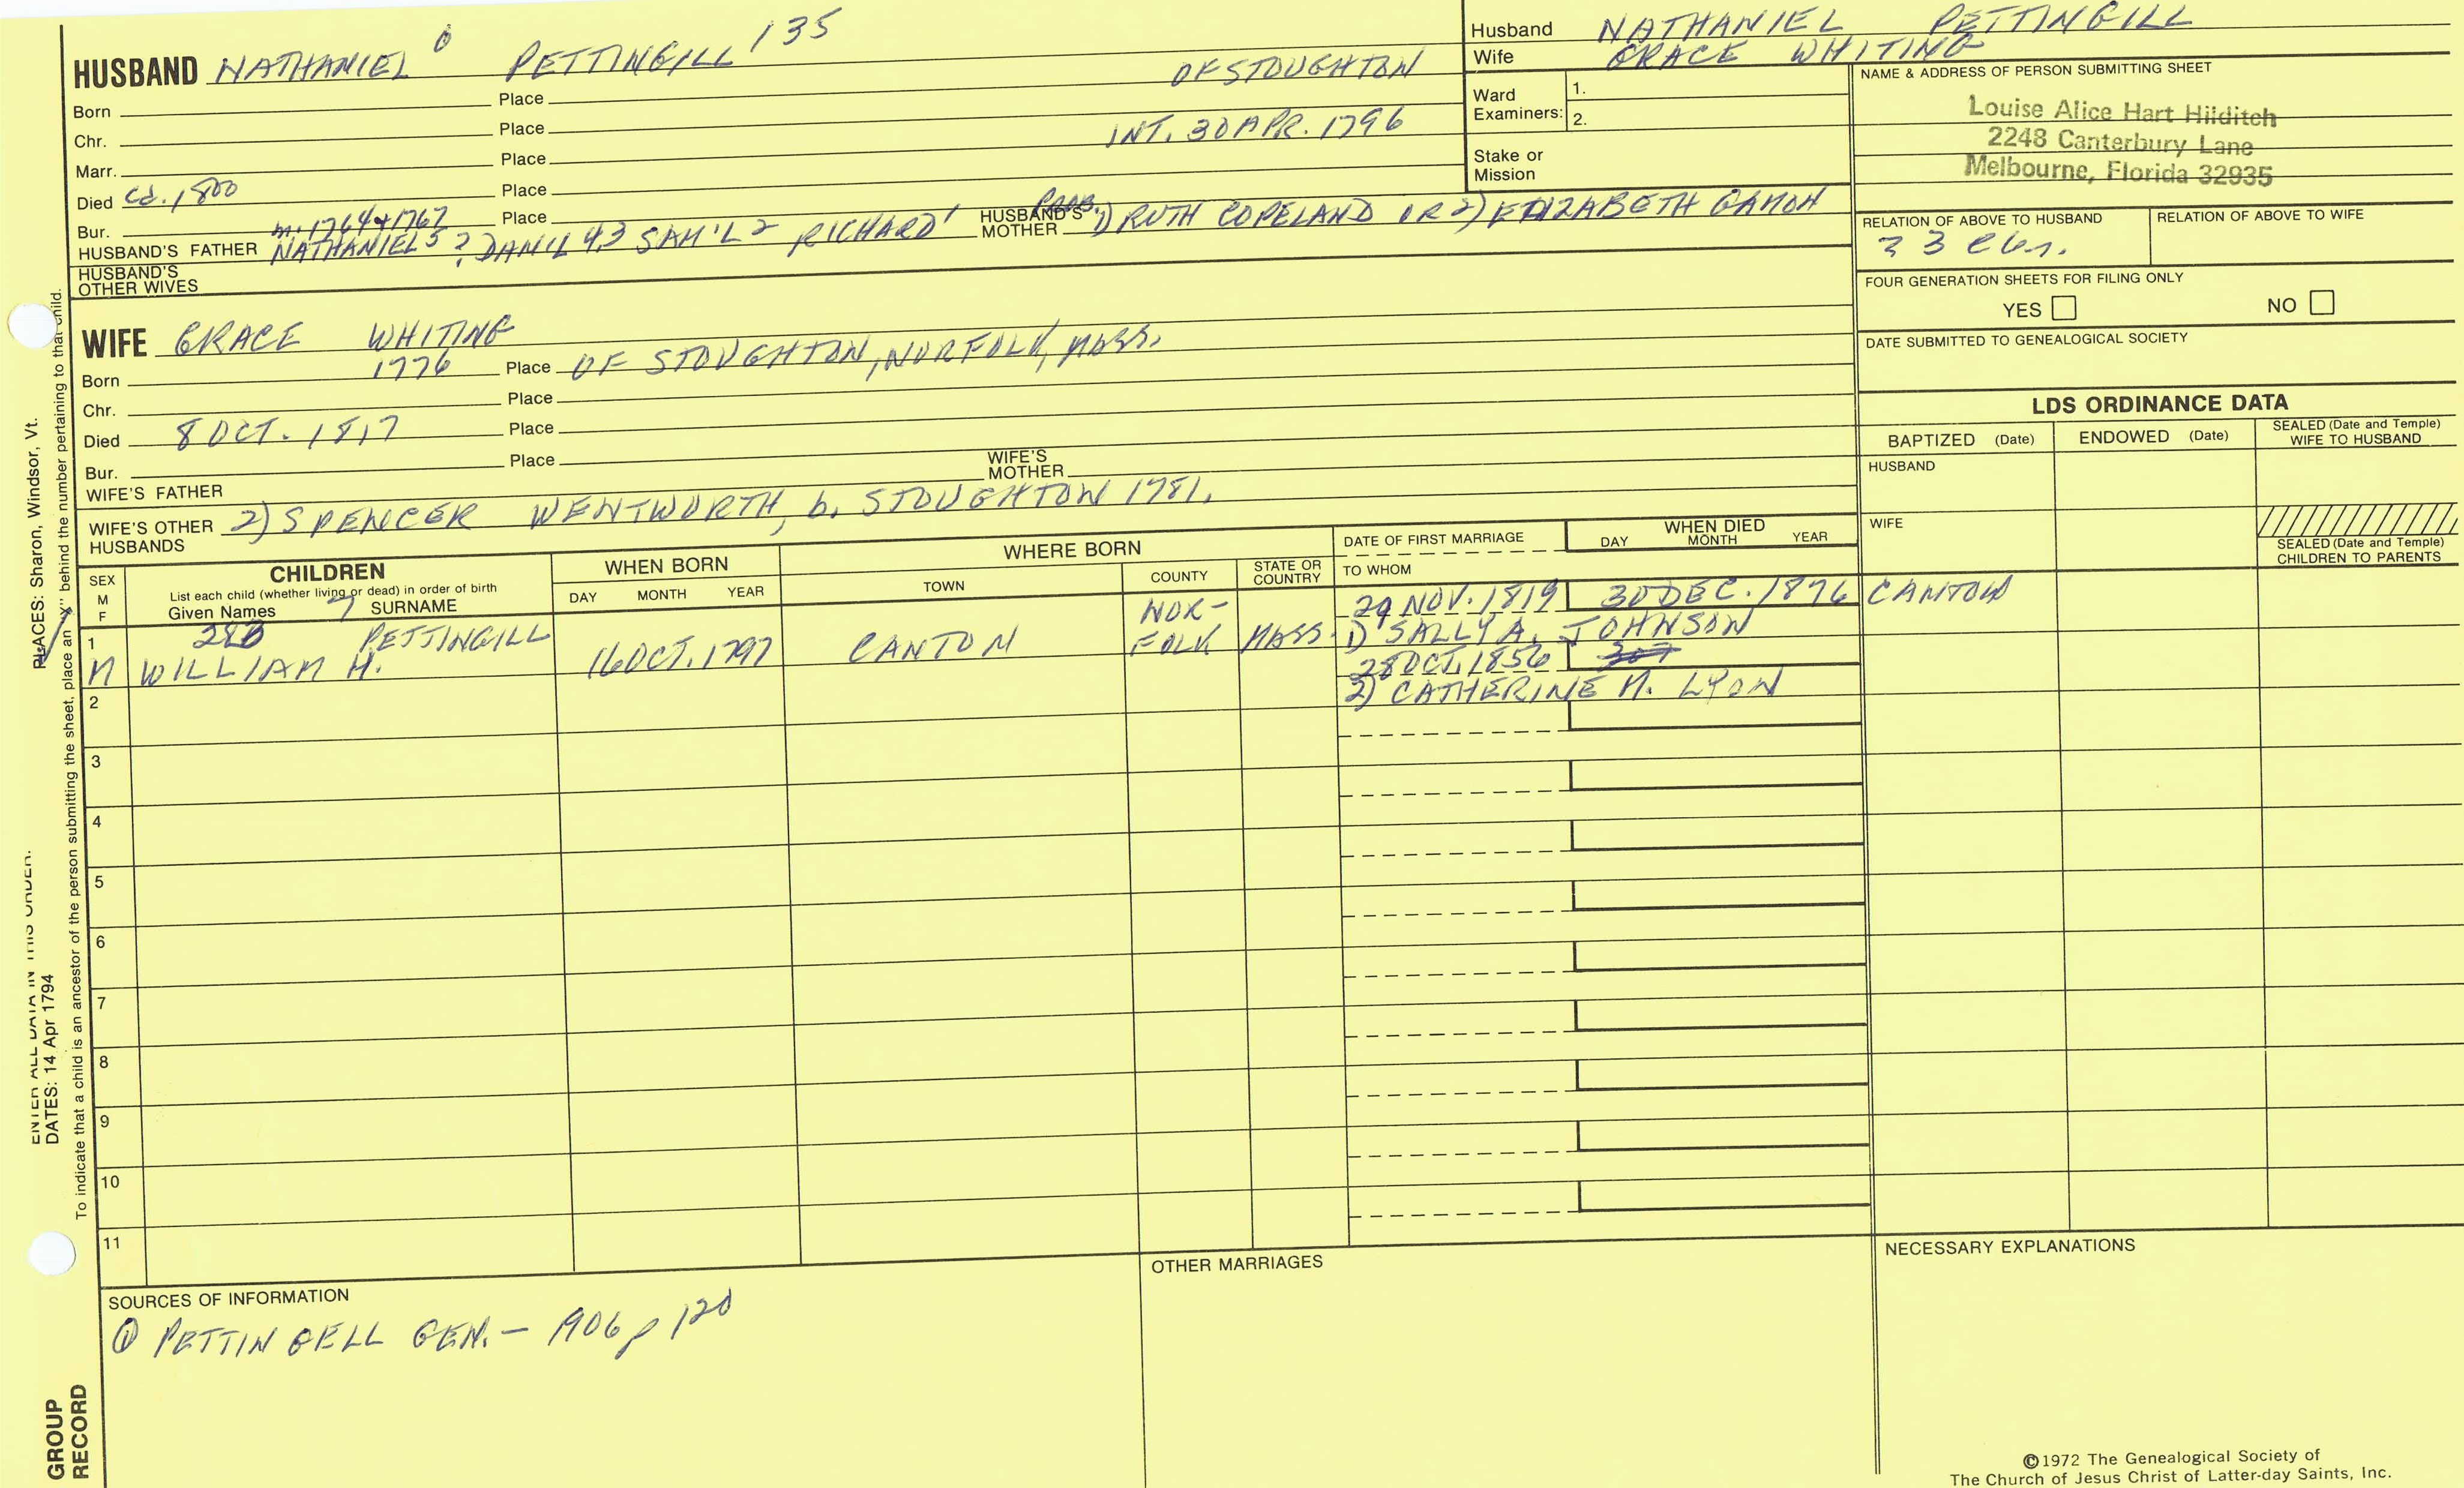 HUSBAND NATHANIEL 6 PETTINGILL 135
Born Place OF STOUGHTON
Chr. Place
Marr. Place INT. 30 APR. 1796
Died Ca. 1800 Place
Bur. Place
m. 1764 & 1767
HUSBAND'S FATHER NATHANIEL 5 ? DAN'L 4,3 SAM'L 2 RICHARD 1 HUSBAND'S MOTHER PROB. 1) RUTH COPELAND OR 2) ELIZABETH
HUSBAND'S OTHER WIVES
Husband NATHANIEL PETTINGILL
Wife GRACE WHITING
Ward Examiners: 1.
2.
Stake or Mission
NAME & ADDRESS OF PERSON SUBMITTING SHEET
Louise Alice Hart Hilditch
2248 Canterbury Lane
Melbourne, Florida 32935
RELATION OF ABOVE TO HUSBAND RELATION OF ABOVE TO WIFE
FOUR GENERATION SHEETS FOR FILING ONLY
YES NO
DATE SUBMITTED TO GENEALOGICAL SOCIETY
WIFE GRACE WHITING
Born 1776 Place OF STOUGHTON, NORFOLK, MASS.
Chr. Place
Died 8 OCT. 1817 Place
Bur. Place
WIFE'S FATHER WIFE'S MOTHER
WIFE'S OTHER HUSBANDS 2) SPENCER WENTWORTH, b. STOUGHTON 1781.
LDS ORDINANCE DATA
BAPTIZED (Date) ENDOWED (Date) SEALED (Date and Temple) WIFE TO HUSBAND
HUSBAND
WIFE
SEALED (Date and Temple) CHILDREN TO PARENTS
SEX M F
CHILDREN
List each child (whether living or dead) in order of birth
Given Names 7 SURNAME
WHEN BORN
DAY MONTH YEAR
WHERE BORN
TOWN COUNTY STATE OR COUNTRY
DATE OF FIRST MARRIAGE
TO WHOM
WHEN DIED
DAY MONTH YEAR
1 PETTINGILL NOR- 29 NOV. 1819 30 DEC. 1876 CANTON
M WILLIAM H. 16 OCT. 1797 CANTON FOLK MASS. 1) SALLY A. JOHNSON
2 28 OCT. 1856
2) CATHERINE M. LYON
3
4
5
6
7
8
9
10
11
SOURCES OF INFORMATION
① PETTINGELL GEN. - 1906 p 120
OTHER MARRIAGES
NECESSARY EXPLANATIONS
©1972 The Genealogical Society of
The Church of Jesus Christ of Latter-day Saints, Inc.
PLACES: Sharon, Windsor, Vt.
ENTER ALL DATA IN THIS ORDER:
DATES: 14 Apr 1794
To indicate that a child is an ancestor of the person submitting the sheet, place an "X" behind the number pertaining to that child.
GROUP
RECORD